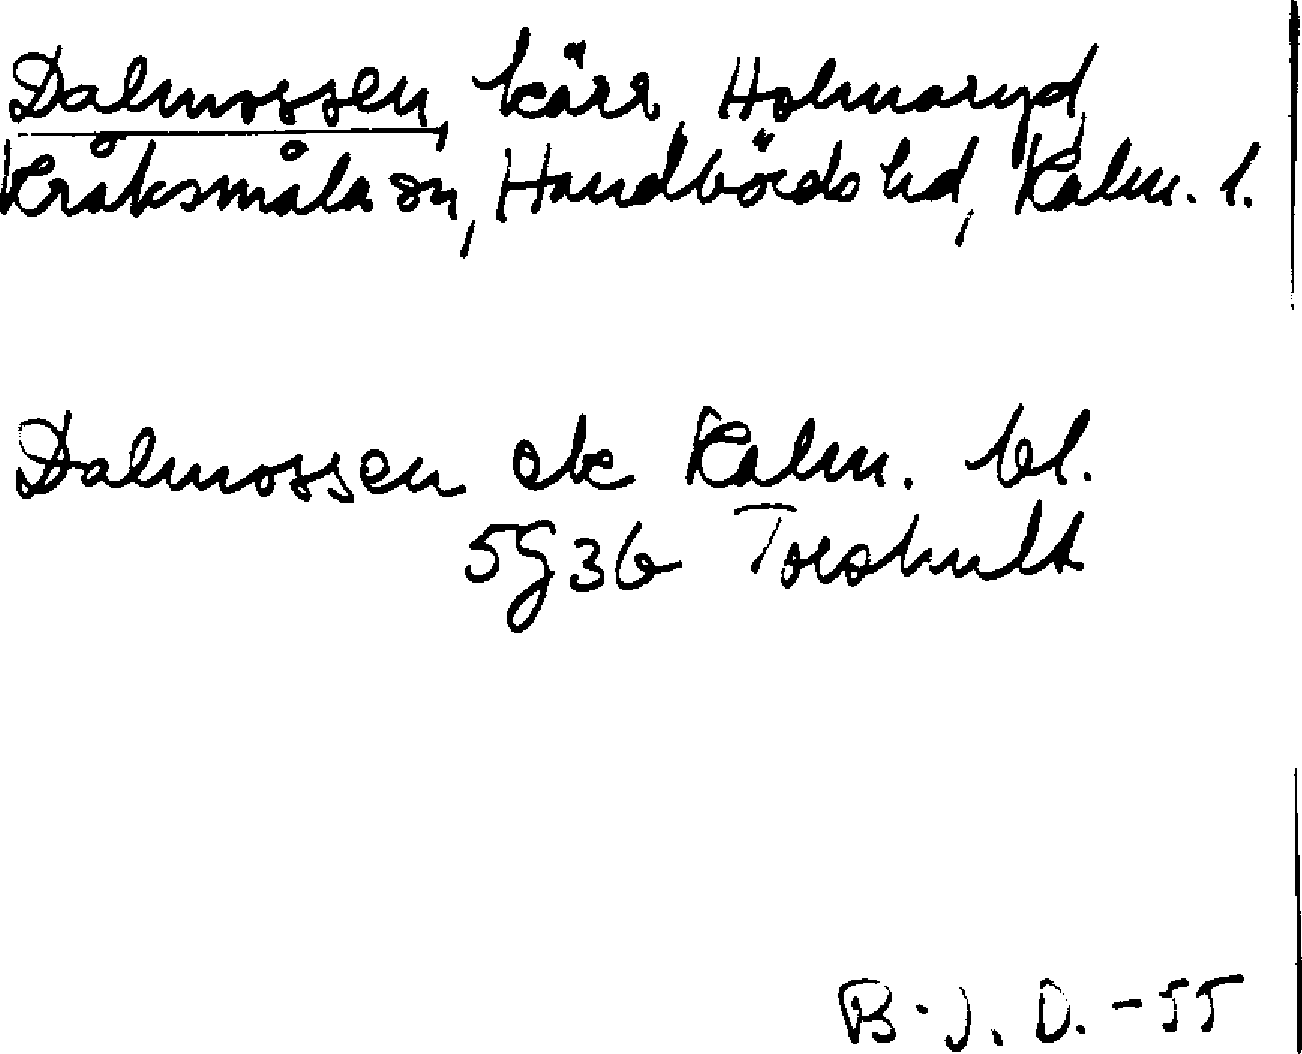 Dalmossen, kärr, Holmaryd,
Kråksmåla sn, Handbörds hd, Kalm. l.
Dalmossen ek Kalm. bl.
5G3b Torshult
B.J.D.-55